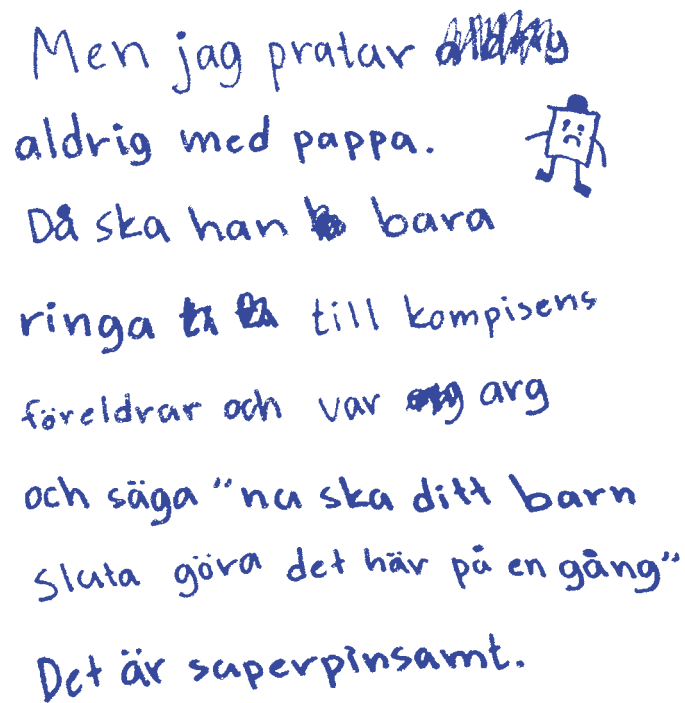 Men jag pratar
aldrig med pappa.
Då ska han bara
ringa till kompisens
föreldrar och var arg
och säga "nu ska ditt barn
sluta göra det här på en gång"
Det är superpinsamt.